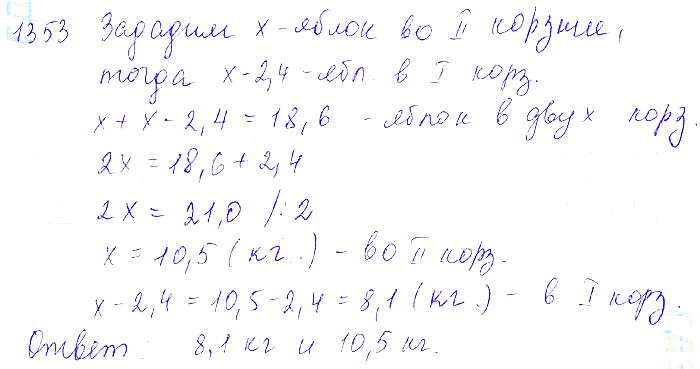 1353 Зададим x - яблок во II корзине,
тогда x - 2,4 - ябл. в I корз.
x + x - 2,4 = 18,6 - яблок в двух корз.
2x = 18,6 + 2,4
2x = 21,0 /: 2
x = 10,5 (кг.) - во II корз.
x - 2,4 = 10,5 - 2,4 = 8,1 (кг.) - в I корз.
Ответ: 8,1 кг и 10,5 кг.